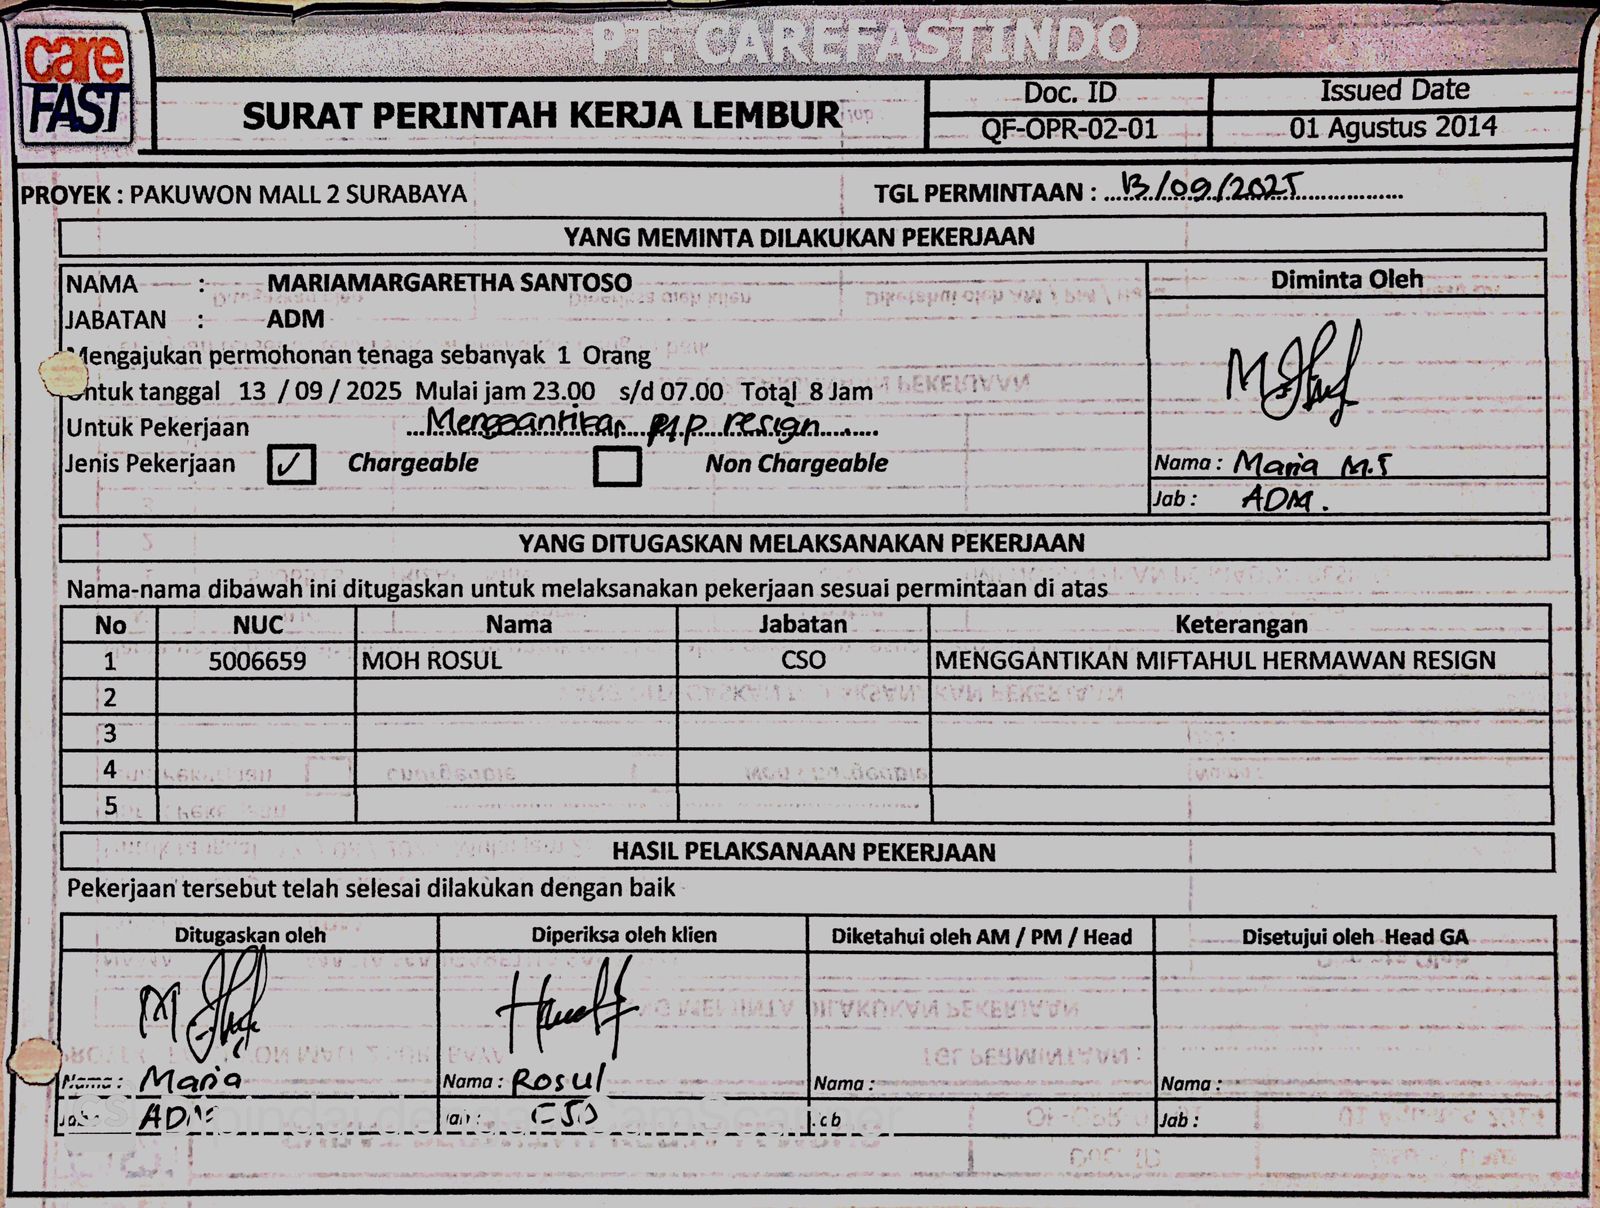 care
FAST
PT. CAREFASTINDO
SURAT PERINTAH KERJA LEMBUR
Doc. ID
Issued Date
QF-OPR-02-01
01 Agustus 2014
PROYEK : PAKUWON MALL 2 SURABAYA
TGL PERMINTAAN : 13/09/2025
YANG MEMINTA DILAKUKAN PEKERJAAN
NAMA : MARIAMARGARETHA SANTOSO
Diminta Oleh
JABATAN : ADM
Mengajukan permohonan tenaga sebanyak 1 Orang
Untuk tanggal 13 / 09 / 2025 Mulai jam 23.00 s/d 07.00 Total 8 Jam
Untuk Pekerjaan Menggantikan resign
Jenis Pekerjaan ✓ Chargeable Non Chargeable
Nama : Maria M.S
Jab : ADM.
YANG DITUGASKAN MELAKSANAKAN PEKERJAAN
Nama-nama dibawah ini ditugaskan untuk melaksanakan pekerjaan sesuai permintaan di atas
No NUC Nama Jabatan Keterangan
1 5006659 MOH ROSUL CSO MENGGANTIKAN MIFTAHUL HERMAWAN RESIGN
2
3
4
5
HASIL PELAKSANAAN PEKERJAAN
Pekerjaan tersebut telah selesai dilakukan dengan baik
Ditugaskan oleh Diperiksa oleh klien Diketahui oleh AM / PM / Head Disetujui oleh Head GA
Nama : Maria Nama : Rosul Nama : Nama :
Jab : ADM Jab : CSO Job Jab :
CS Dipindai dengan CamScanner